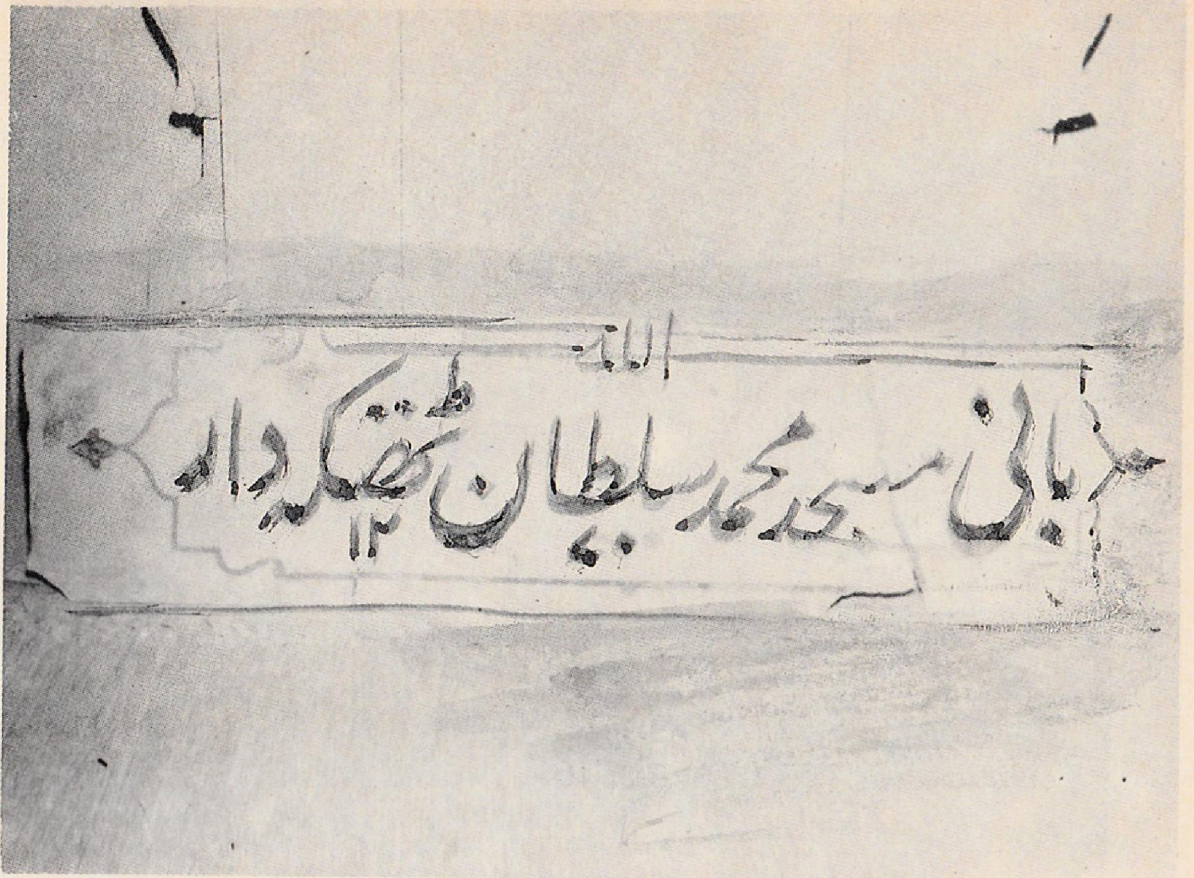 اللہ
بانی مسجد محمد سلطان ٹھیکہ دار
۱۲